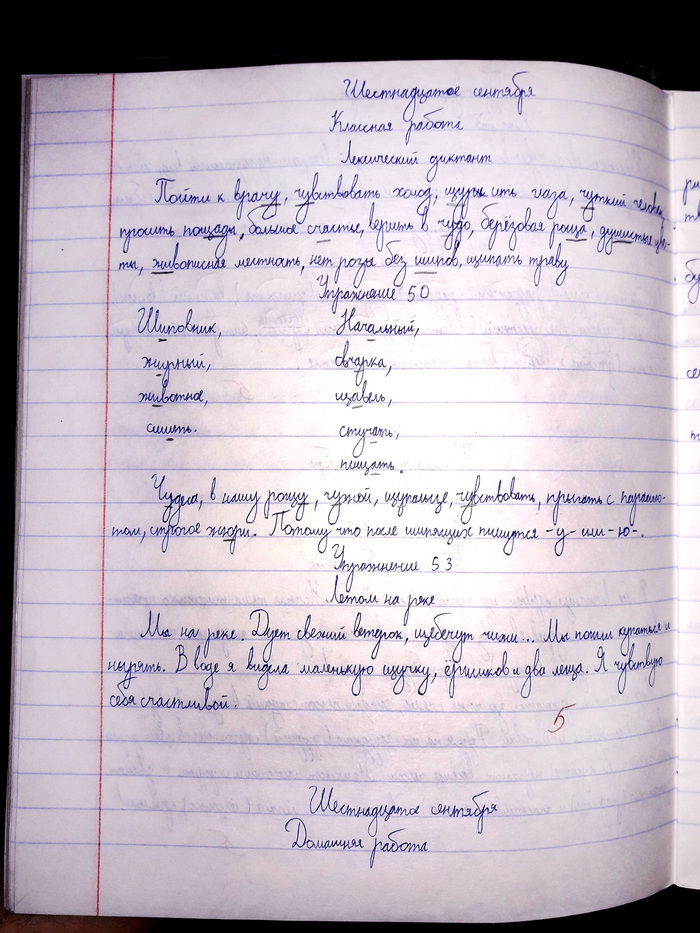 Шестнадцатое сентября
Классная работа
Лексический диктант
Пойти к врачу, чувствовать холод, щурить глаза, чуткий человек,
просить пощады, большое счастье, верить в чудо, берёзовая роща, душистые цве-
ты, живописная местность, нет розы без шипов, щипать траву
Упражнение 50
Шиповник, Начальный,
жирный, овчарка,
животное, щавель,
сишить. стучать,
пищать.
Чудеса, в нашу рощу, чужой, щупальце, чувствовать, прыгать с парашю-
том, строгое жюри. Потому что после шипящих пишутся -у- или -ю-.
Упражнение 53
Летом на реке
Мы на реке. Дует свежий ветерок, щебечут чижи... Мы пошли купаться и
нырять. В воде я видела маленькую щучку, ёршиков и два леща. Я чувствую
себя счастливой.
5
Шестнадцатое сентября
Домашняя работа